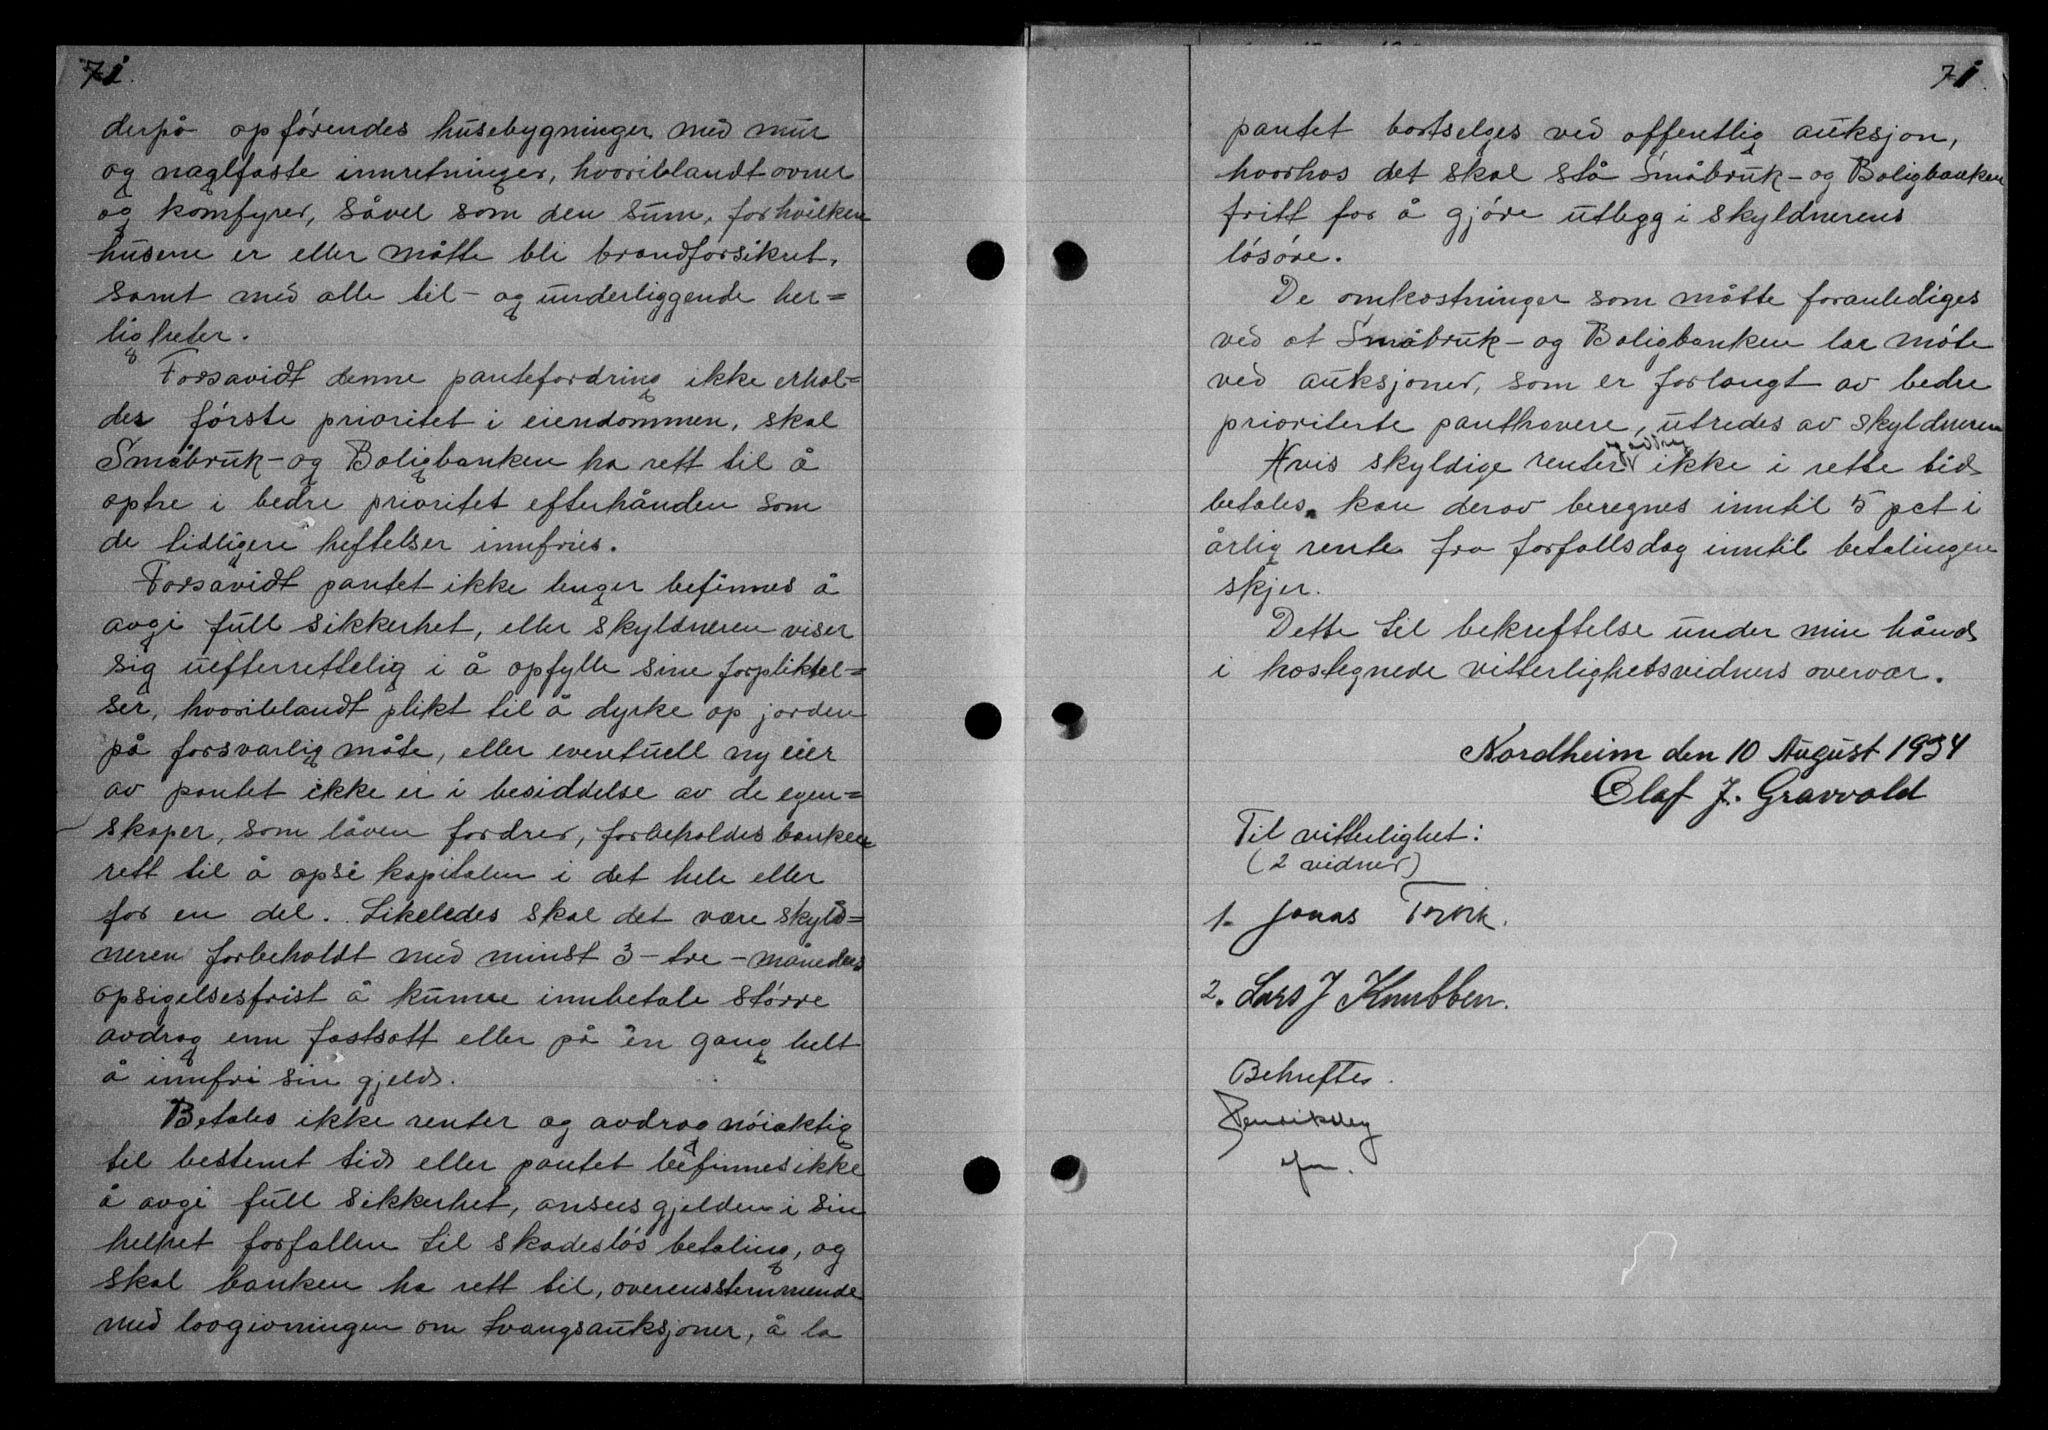 71.
derpå opförendes husebygninger med mur
og naglfaste innretninger, hvoriblandt ovner
og komfyrer, såvel som den sum, forhvilken
husene er eller måtte bli brandforsikret,
samt med alle til- og underliggende her=
ligheter.
Forsavidt denne pantefordring ikke erhol=
der förste prioritet i eiendommen, skal
Småbruk- og Boligbanken ha rett til å
optre i bedre prioritet efterhånden som
de tidligere heftelser innfries.
Forsavidt pantet ikke lenger befinnes å
avgi full sikkerhet, eller skyldneren viser
sig uefterrettelig i å opfylle sine forpliktel=
ser, hvoriblandt plikt til å dyrke op jorden
på forsvarlig måte, eller eventuell ny eier
av pantet ikke er i besiddelse av de egen=
skaper, som låven fordrer, forbeholdes banken
rett til å opsi kapitalen i det hele eller
for en del. Likeledes skal det være skyld=
neren forbeholdt med minst 3 - tre - måneders
opsigelsesfrist å kunne innbetale större
avdrag enn fastsatt eller på én gang helt
å innfri sin gjeld.
Betales ikke renter og avdrag nöiaktig
til bestemt tid eller pantet befinnes ikke
å avgi full sikkerhet, ansees gjelden i sin
helhet forfallen til skadeslös betaling, og
skal banken ha rett til, overensstemmende
med lovgivningen om tvangsauksjoner, å la
71.
pantet bortselges ved offentlig auksjon,
hvorhos det skal stå Småbruk- og Boligbanken
fritt for å gjöre utlegg i skyldnerens
lösöre.
De omkostninger som måtte foranlediges
ved at Småbruk- og Boligbanken lar möte
ved auksjoner, som er forlangt av bedre
prioriterte panthavere, utredes av skyldneren
Hvis skyldige renter ikke i rette tid
betales, kan derav beregnes inntil 5 pct i
årlig rente fra forfallsdag inntil betalingen
skjer.
Dette til bekreftelse under min hånd
i hostegnede vitterlighetsvidners overvær.
Nordheim den 10 August 1934
Olaf J. Gravvold
Til vitterlighet:
(2 vidner)
1. Jonas
2. Lars J Knubben.
Bekreftes.